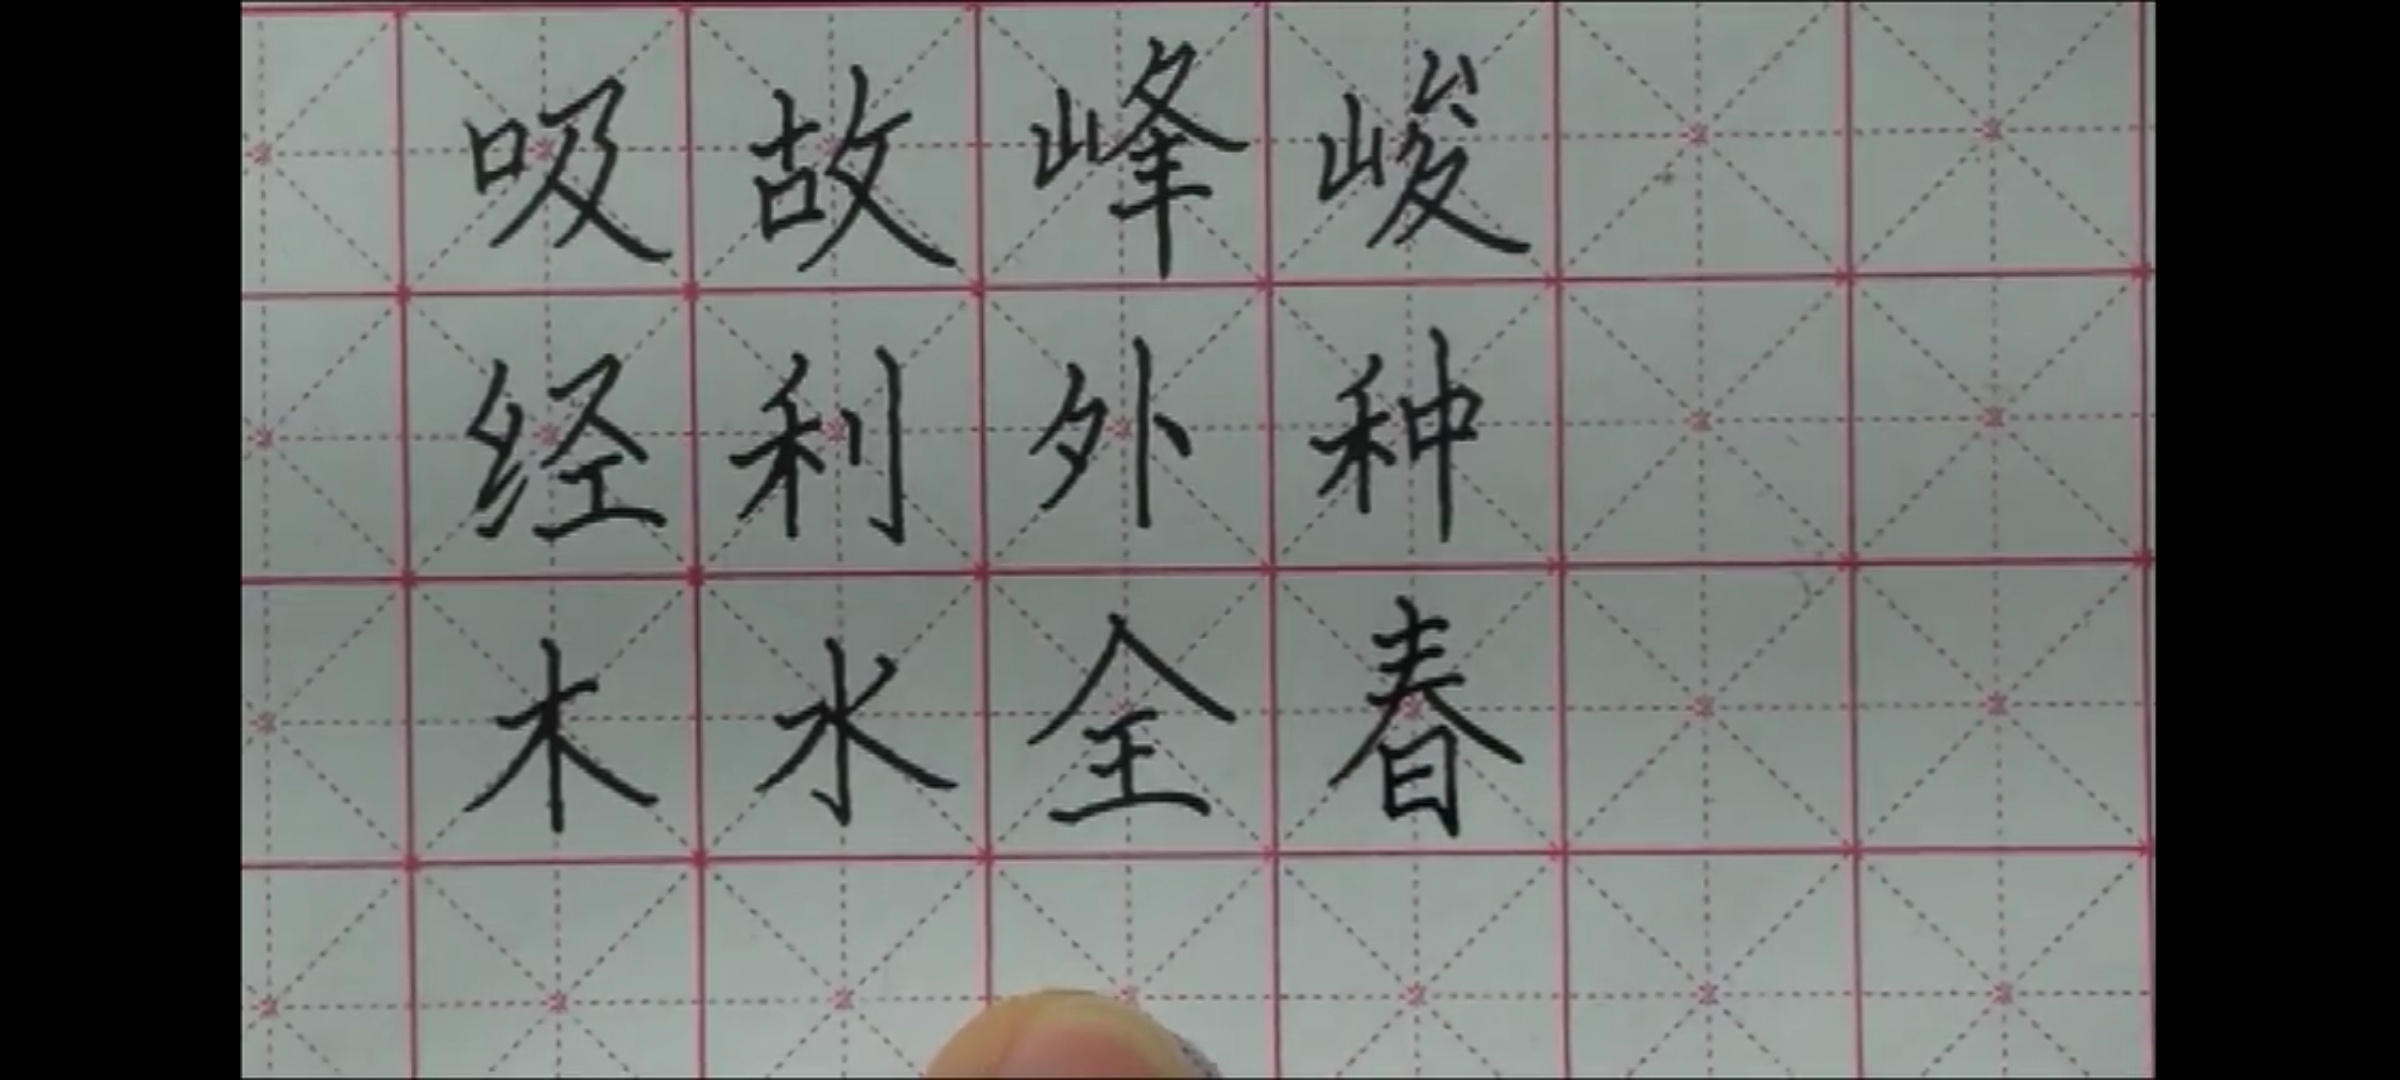 吸故峰峻
经利外种
木水全春